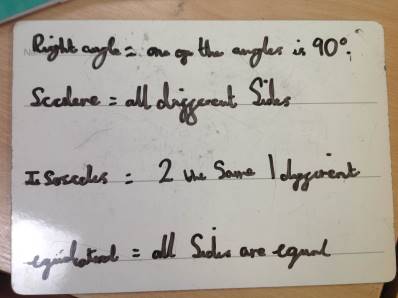 Right angle = one of the angles is 90°.
Scelene = all different Sides
Isosceles = 2 the Same 1 different
equilateral = all Sides are equal